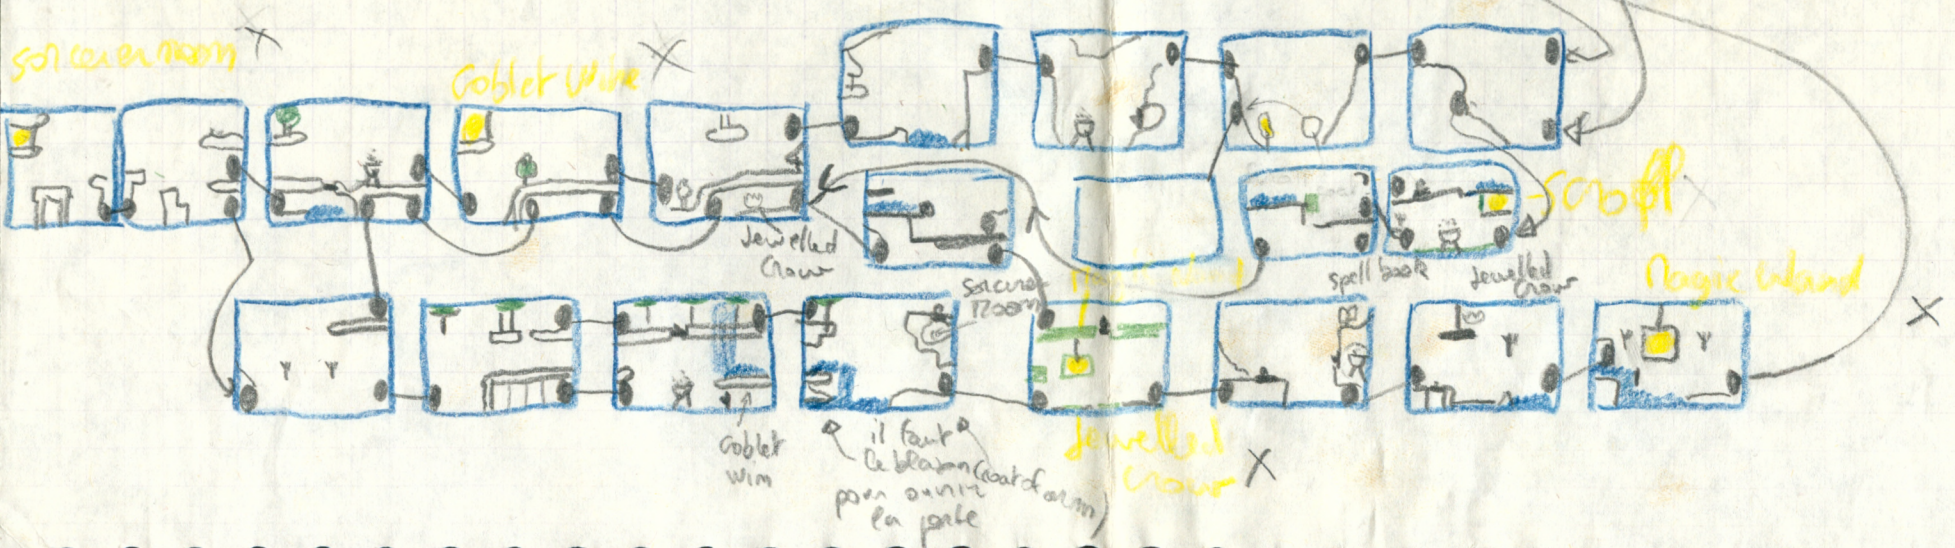 sorcerer room
Goblet wine
Jewelled
Crown
sorcerer
room
scroll
spell book
Jewelled
Crown
Magic wand
Goblet
win
il faut
le blason (coat of arm)
pour ouvrir
la porte
Jewelled
Crown